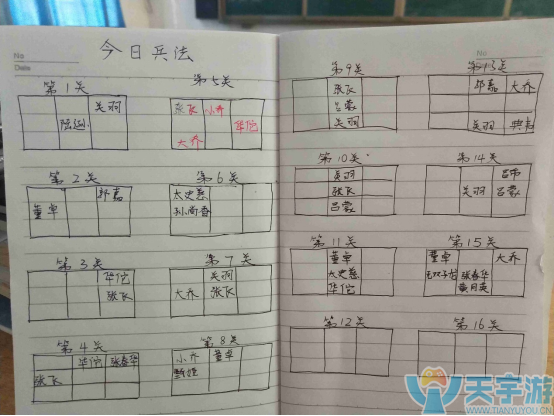 No
Date
今日兵法
第1关
关羽
陆逊
第2关
郭嘉
董卓
第3关
华佗
张飞
第4关
华佗 张春华
张飞
第5关
张飞 小乔
华佗
大乔
第6关
太史慈
孙尚香
第7关
关羽
大乔 张飞
第8关
小乔 董卓
甄姬
No
Date
第9关
张飞
吕蒙
关羽
第10关
关羽
张飞
吕蒙
第11关
董卓
太史慈
华佗
第12关
第13关
郭嘉 大乔
关羽 典韦
第14关
吕布
关羽 吕蒙
第15关
董卓 大乔
张春华
黄月英
第16关
天宇游
WWW.TIANYUYOU.CN